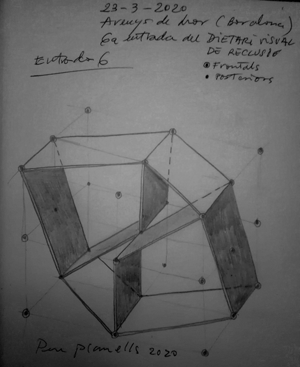 23-3-2020
Arenys de Mar (Barcelona)
6a entrada del DIETARI VISUAL
DE RECLUSIÓ
Entrada 6
Frontals
Posteriors
Pere Planells 2020